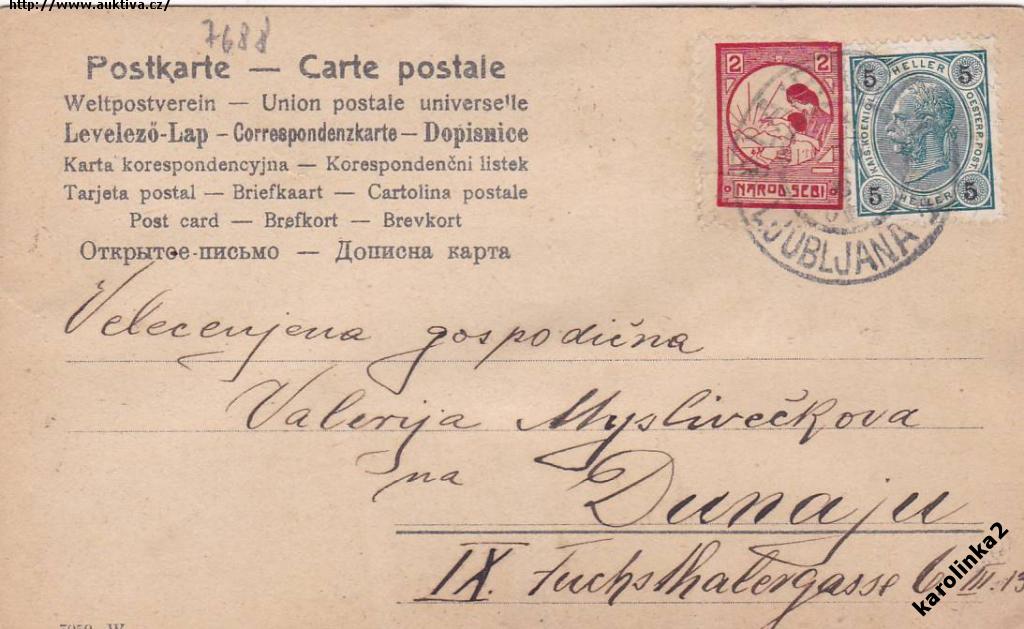 http://www.auktiva.cz/
7688
Postkarte — Carte postale
Weltpostverein — Union postale universelle
Levelező-Lap – Correspondenzkarte – Dopisnice
Karta korespondencyjna — Korespondenčni listek
Tarjeta postal — Briefkaart — Cartolina postale
Post card — Brefkort — Brevkort
Открытое письмо — Дописна карта
2 2
NAROD SEBI
5 HELLER 5
KAIS. KOENIGL. OESTERR. POST.
5 HELLER 5
LJUBLJANA
Velecenjena gospodična
Valerija Myslivečkova
na Dunaju
IX. Fuchsthalergasse 6 III. 13
karolinka2